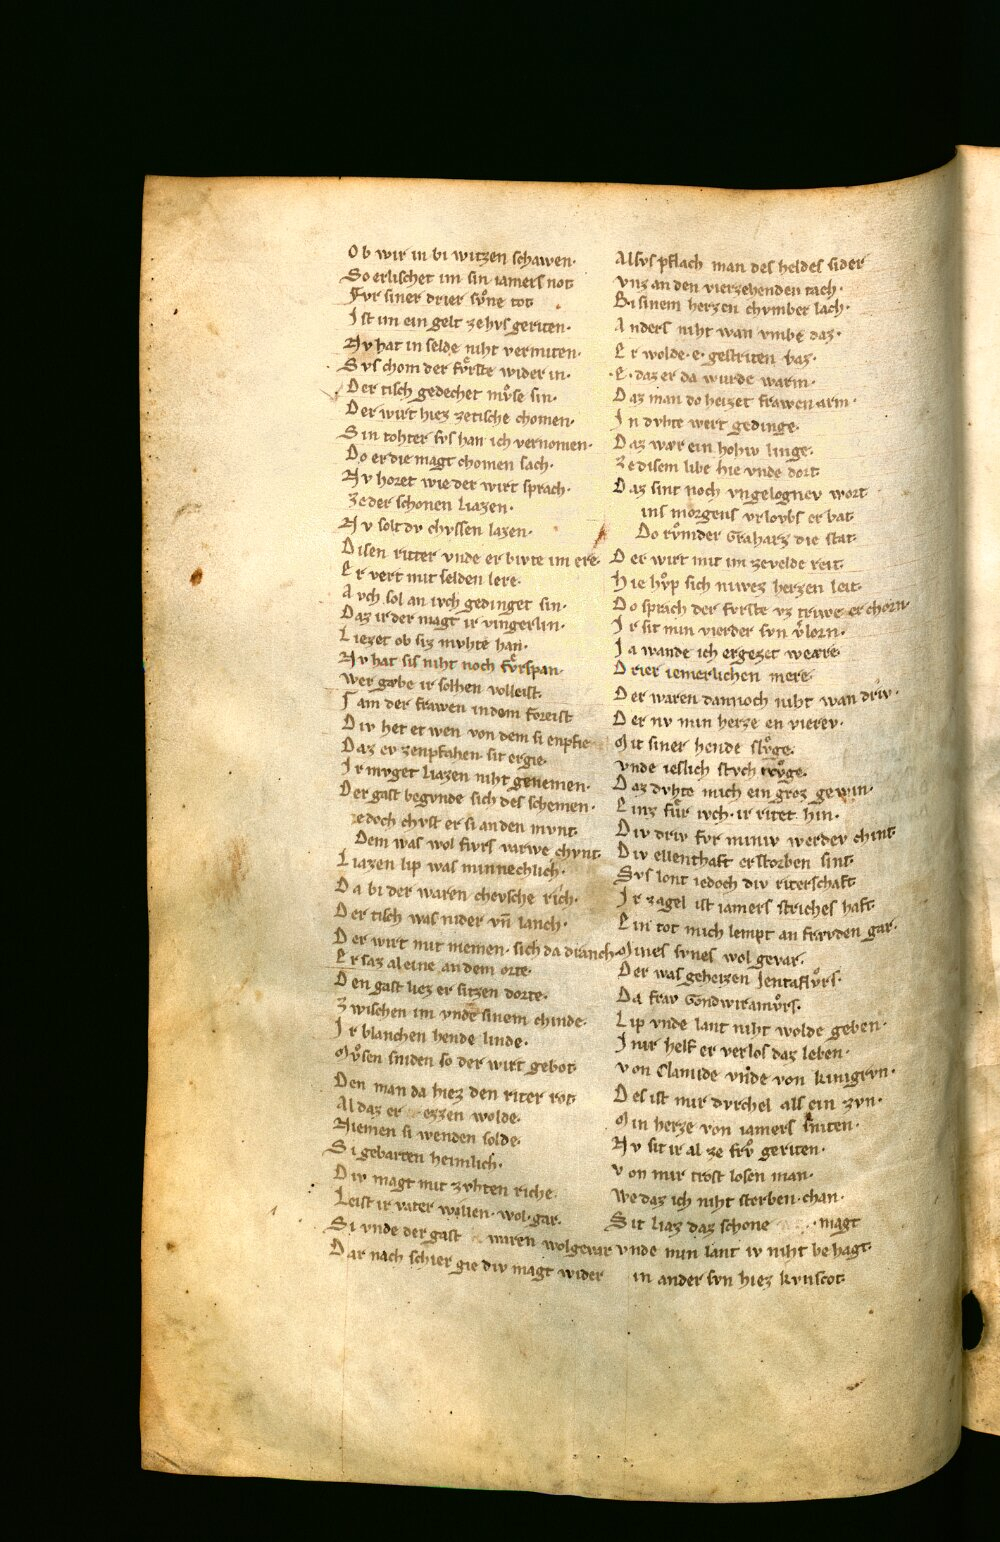 Ob wir in bi witzen schawen·
So erlischet im sin iamers not
Fvr siner drier svͦne tot
Ist im ein gelt ze hvs geriten·
Nv hat in selde niht vermiten·
Svs chom der fvͤrste wider in·
Der tisch gedechet mvͦse sin·
Der wirt hiez ze tische chomen·
Sin tohter svs han ich vernomen·
Do er die magt chomen sach·
Nv horet wie der wirt sprach·
Ze der schonen liazen·
Nv solt dv chvssen lazen·
Disen ritter vnde er bivte im ere·
Er vert mit selden lere·
Avch sol an ivch gedinget sin·
Daz ir der magt ir vingerlin·
Liezet ob siz mvhte han·
Nv hat sis niht noch fvͤrspan·
Wer gæbe ir solhen volleist
Sam der frawen in dem foreist
Div het et wen von dem si enpfie
Daz ev zenpfahen sit ergie·
Ir mvget liazen niht genemen·
Der gast begvnde sich des schemen·
iedoch chvst er si an den mvnt
Dem was wol fivrs varwe chvnt·
Liazen lip was minnechlich·
Da bi der waren chevsche rich·
Der tisch was nider vn̄ lanch·
Der wirt mit niemen· sich da dranch·
Er saz al eine an dem orte·
Den gast liez er sitzen dorte·
Zwischen im vnde sinem chinde·
Ir blanchen hende linde·
Mvͦsen sniden so der wirt gebot
Den man da hiez den riter rot
Al daz er ezzen wolde·
Niemen si wenden solde·
Si gebarten heimlich·
Div magt mit zvhten riche·
Leist ir vater willen· wol· gar·
Si vnde der gast waren wolgevar
Dar nach schier gie div magt wider
Alsvs pflach man des heldes sider
vnz an den vierzehenden tach·
Bi sinem herzen chvmber lach·
Anders niht wan vmbe daz·
Er wolde· e· gestriten baz·
·E· daz er da wurde warm·
Daz man do heizet frawen arm·
In dvhte wert gedinge·
Daz wær ein hohiv linge·
Ze disem libe hie vnde dort
Daz sint noch vngelognev wort
ins morgens vrlovbs er bat
Do rvͦmder Graharz die stat·
Der wirt mit im ze velde reit·
Hie hvͦp sich niwez herzen leit·
Do sprach der fvrste vz triwe er chorn·
Ir sit min vierder svn vͤlorn·
Ia wande ich ergezet weære
Drier iemerlichen mere·
Der waren dannoch niht wan driv·
Der nv min herze en vierev·
Mit siner hende slvͤge·
vnde ieslich stvch trvͤge·
Daz dvhte mich ein groz gewin·
Einz fuͤr ivch· ir ritet hin·
Div driv fvr miniv werdev chint
Div ellenthaft erstorben sint·
Svs lont iedoch div riterschaft
Ir zagel ist iamers striches haft·
Ein tot mich lempt an frævden gar·
Mines svnes wol gevar·
Der was geheizen Ientaflvͦrs·
Da fraw Gondwiramvͦrs·
Lip vnde lant niht wolde geben·
In ir helf er verlos daz leben·
von Clamide vnde von kingrvn·
Des ist mir dvrchel alls ein zvn·
Min herze von iamers sniten·
Nv sit ir al ze frvͦ geriten·
von mir trost losen man·
We daz ich niht sterben· chan·
Sit liaz daz schone magt
vnde min lant iv niht behagt·
in ander svn hiez kvnscot·